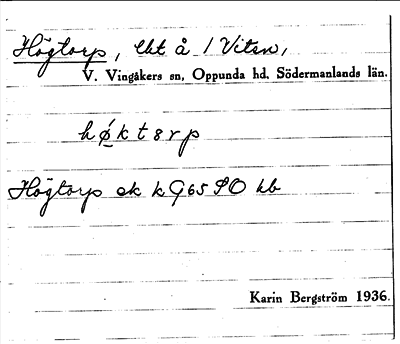 Högtorp, lht å 1 Viten,
V. Vingåkers sn, Oppunda hd, Södermanlands län.
høktərp
Högtorp ek kG65 SO hb
Karin Bergström 1936.